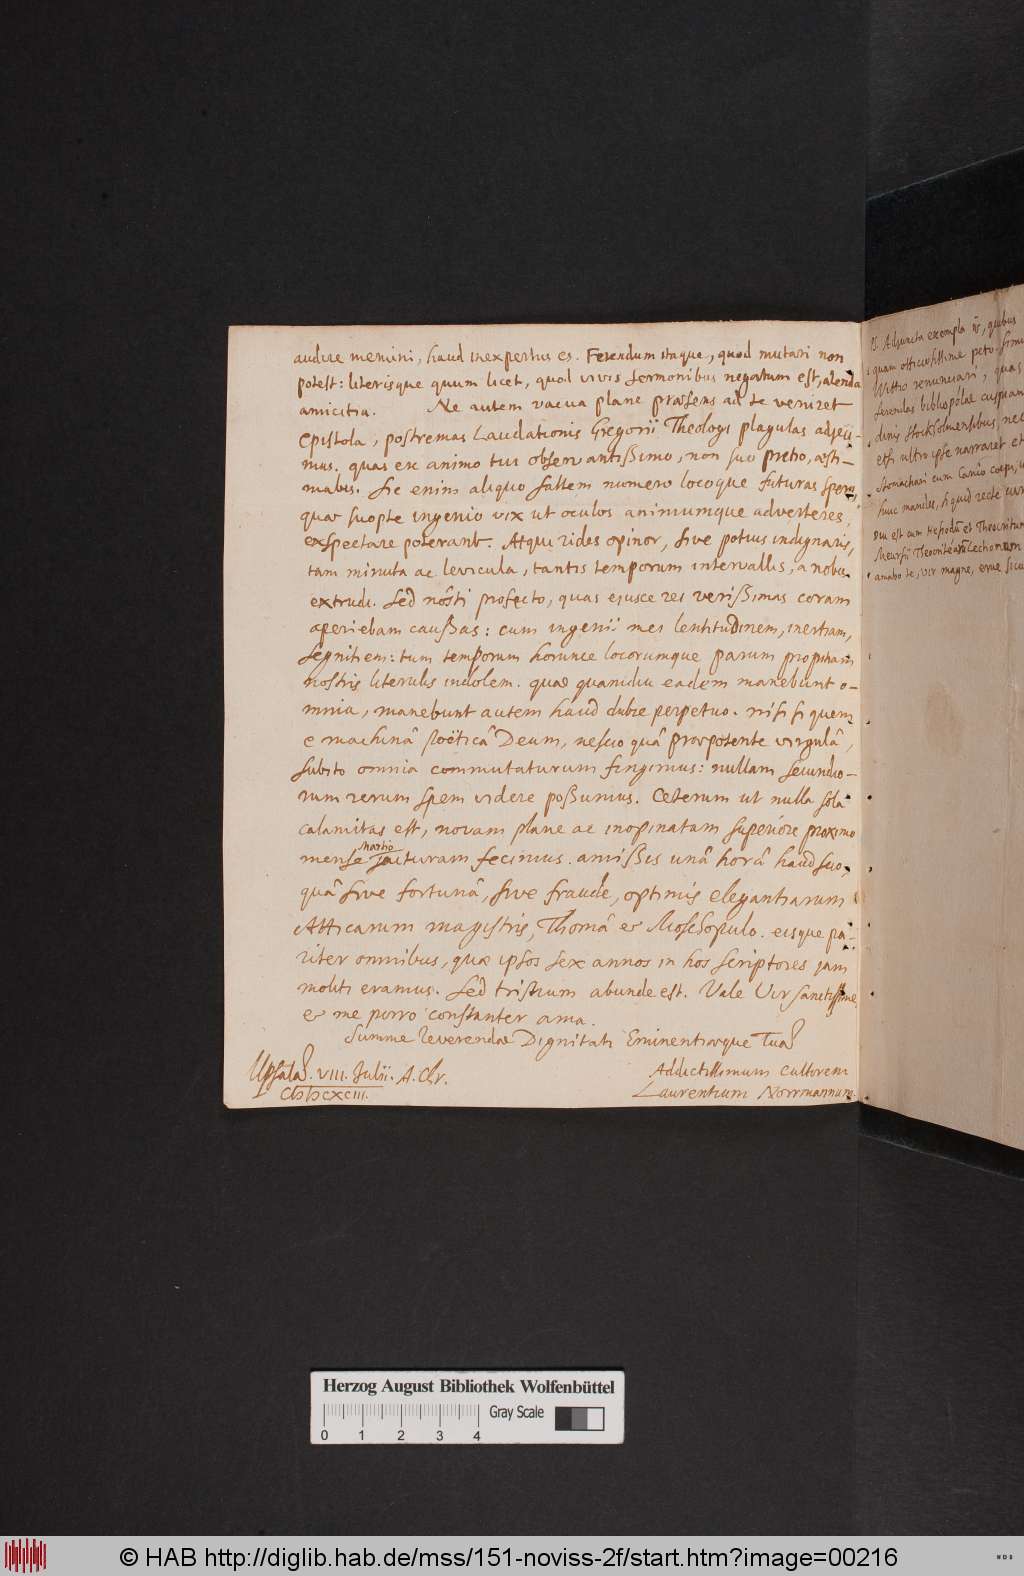 audire memini, haud inexpertus es. Ferendum itaque, quod mutari non
potest: literisque quum licet, quod vivis sermonibus negatum est, alenda
amicitia. Ne autem vacua plane præsens ad te veniret
epistola, postremas Laudationis Gregorii Theologi plagulas adjeci-
mus. quas ex animo tui observantißimo, non suo pretio, æsti-
mabis. Sic enim aliquo saltem numero locoque futuras spero,
quæ suopte ingenio vix ut oculos animumque adverteres,
exspectare poterant. Atqui rides opinor, sive potius indignaris,
tam minuta ac levicula, tantis temporum intervallis, a nobis
extrudi. Sed nôsti profecto, quas ejusce rei verißimas coram
aperiebam caußas: cum ingenii mei lentitudinem, inertiam,
segnitiem: tum temporum horunce locorumque parum propitiam
nostris literulis indolem. quæ quamdiu eadem manebunt o-
mnia, manebunt autem haud dubie perpetuo. nisi si quem
e machinâ Poëticâ Deum, nescio quâ præpotente virgulâ,
subito omnia commutaturum fingimus: nullam secundio-
rum rerum spem videre poßumus. Ceterum ut nulla sola
calamitas est, novam plane ac inopinatam superiore proximo
mense Martio jacturam fecimus. amißis unâ horâ haud scio,
quâ sive fortunâ, sive fraude, optimis elegantiarum
Atticarum magistris, Thomâ et Moschopulo. eisque pa-
riter omnibus, quæ ipsos sex annos in hos scriptores jam
moliti eramus. Sed tristium abunde est. Vale Vir sanctissime,
et me porro constanter ama.
Summe Reverendæ Dignitati Eminentiæque Tuæ
Addictissimum cultorem
Laurentium Norrmannum.
Upsalæ. VIII. Julii. A. Chr.
CIƆIƆCXCIII.
PS. Adjuncta exempla quibus
quam officiosissime peto
Wittio renunciari, quas
ferendas bibliopolæ cuspiam
Stockholmensibus, nec
etsi ultro ipse narraret et
stomachari cum
huc mandes, si quid recte
Diu est cum Hesiodum et Theocritum
Meursii Lectionum
amabo te, vir magne, erue
Herzog August Bibliothek Wolfenbüttel
Gray Scale
0 1 2 3 4
© HAB http://diglib.hab.de/mss/151-noviss-2f/start.htm?image=00216